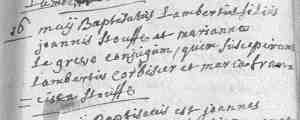 26 maij Baptisatus Lambertus filius
joannis Stouffs et mariannæ
le grevve conjugum, quem susceperunt
Lambertus Corbisier et maria fran=
=cisca Stouffs
Baptisatus est joannes